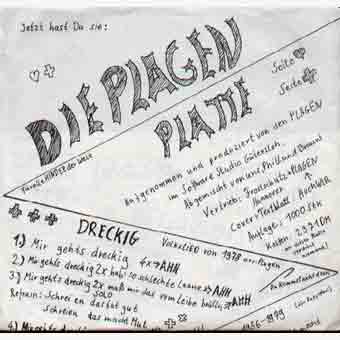 Jetzt hast Du sie:
DIE PLAGEN
PLATTE
Seite
Seite
KINDER der
Aufgenommen und produziert von den PLAGEN
im Software Studio Gütersloh.
Abgemischt von uns, Phill und
Vertrieb: Frostschutz + PLAGEN
Hannover
Cover + Textblatt: HUCHVER
Auflage: 1000 Stk
Kosten: 2921 DM
DRECKIG
Volkslied von 1978 arr. Plagen
1.) Mir gehts dreckig 4x → AHH
2.) Mir gehts dreckig 2x hab so schlechte Laune → AHH
3.) Mir gehts dreckig 2x maß mir das vom Leibe halten → AHH
SOLO
Refrain: Schreien das tut gut
Schreien das macht Mut
4.) Mir gehts
1956-1979